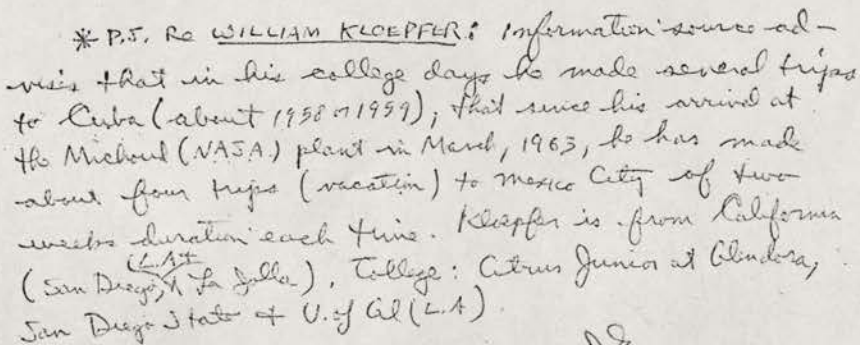 * P.S. Re WILLIAM KLOEPFER: Information source ad-
vises that in his college days he made several trips
to Cuba (about 1958 or 1959); that since his arrival at
the Michoud (NASA) plant in March, 1963, he has made
about four trips (vacation) to Mexico City of two
weeks duration each time. Kloepfer is from California
(L.A. &
(San Diego, La Jolla), College: Citrus Junior at Glendora,
San Diego State & U. of Cal (L.A)